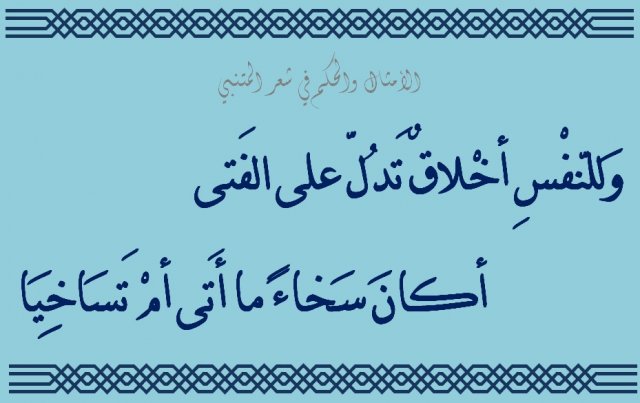 الأمثال والحكم في شعر المتنبي
وَللنّفْسِ أخْلاقٌ تَدلُّ على الفَتى
أكانَ سَخاءً ما أَتى أمْ تَسَاخِيَا